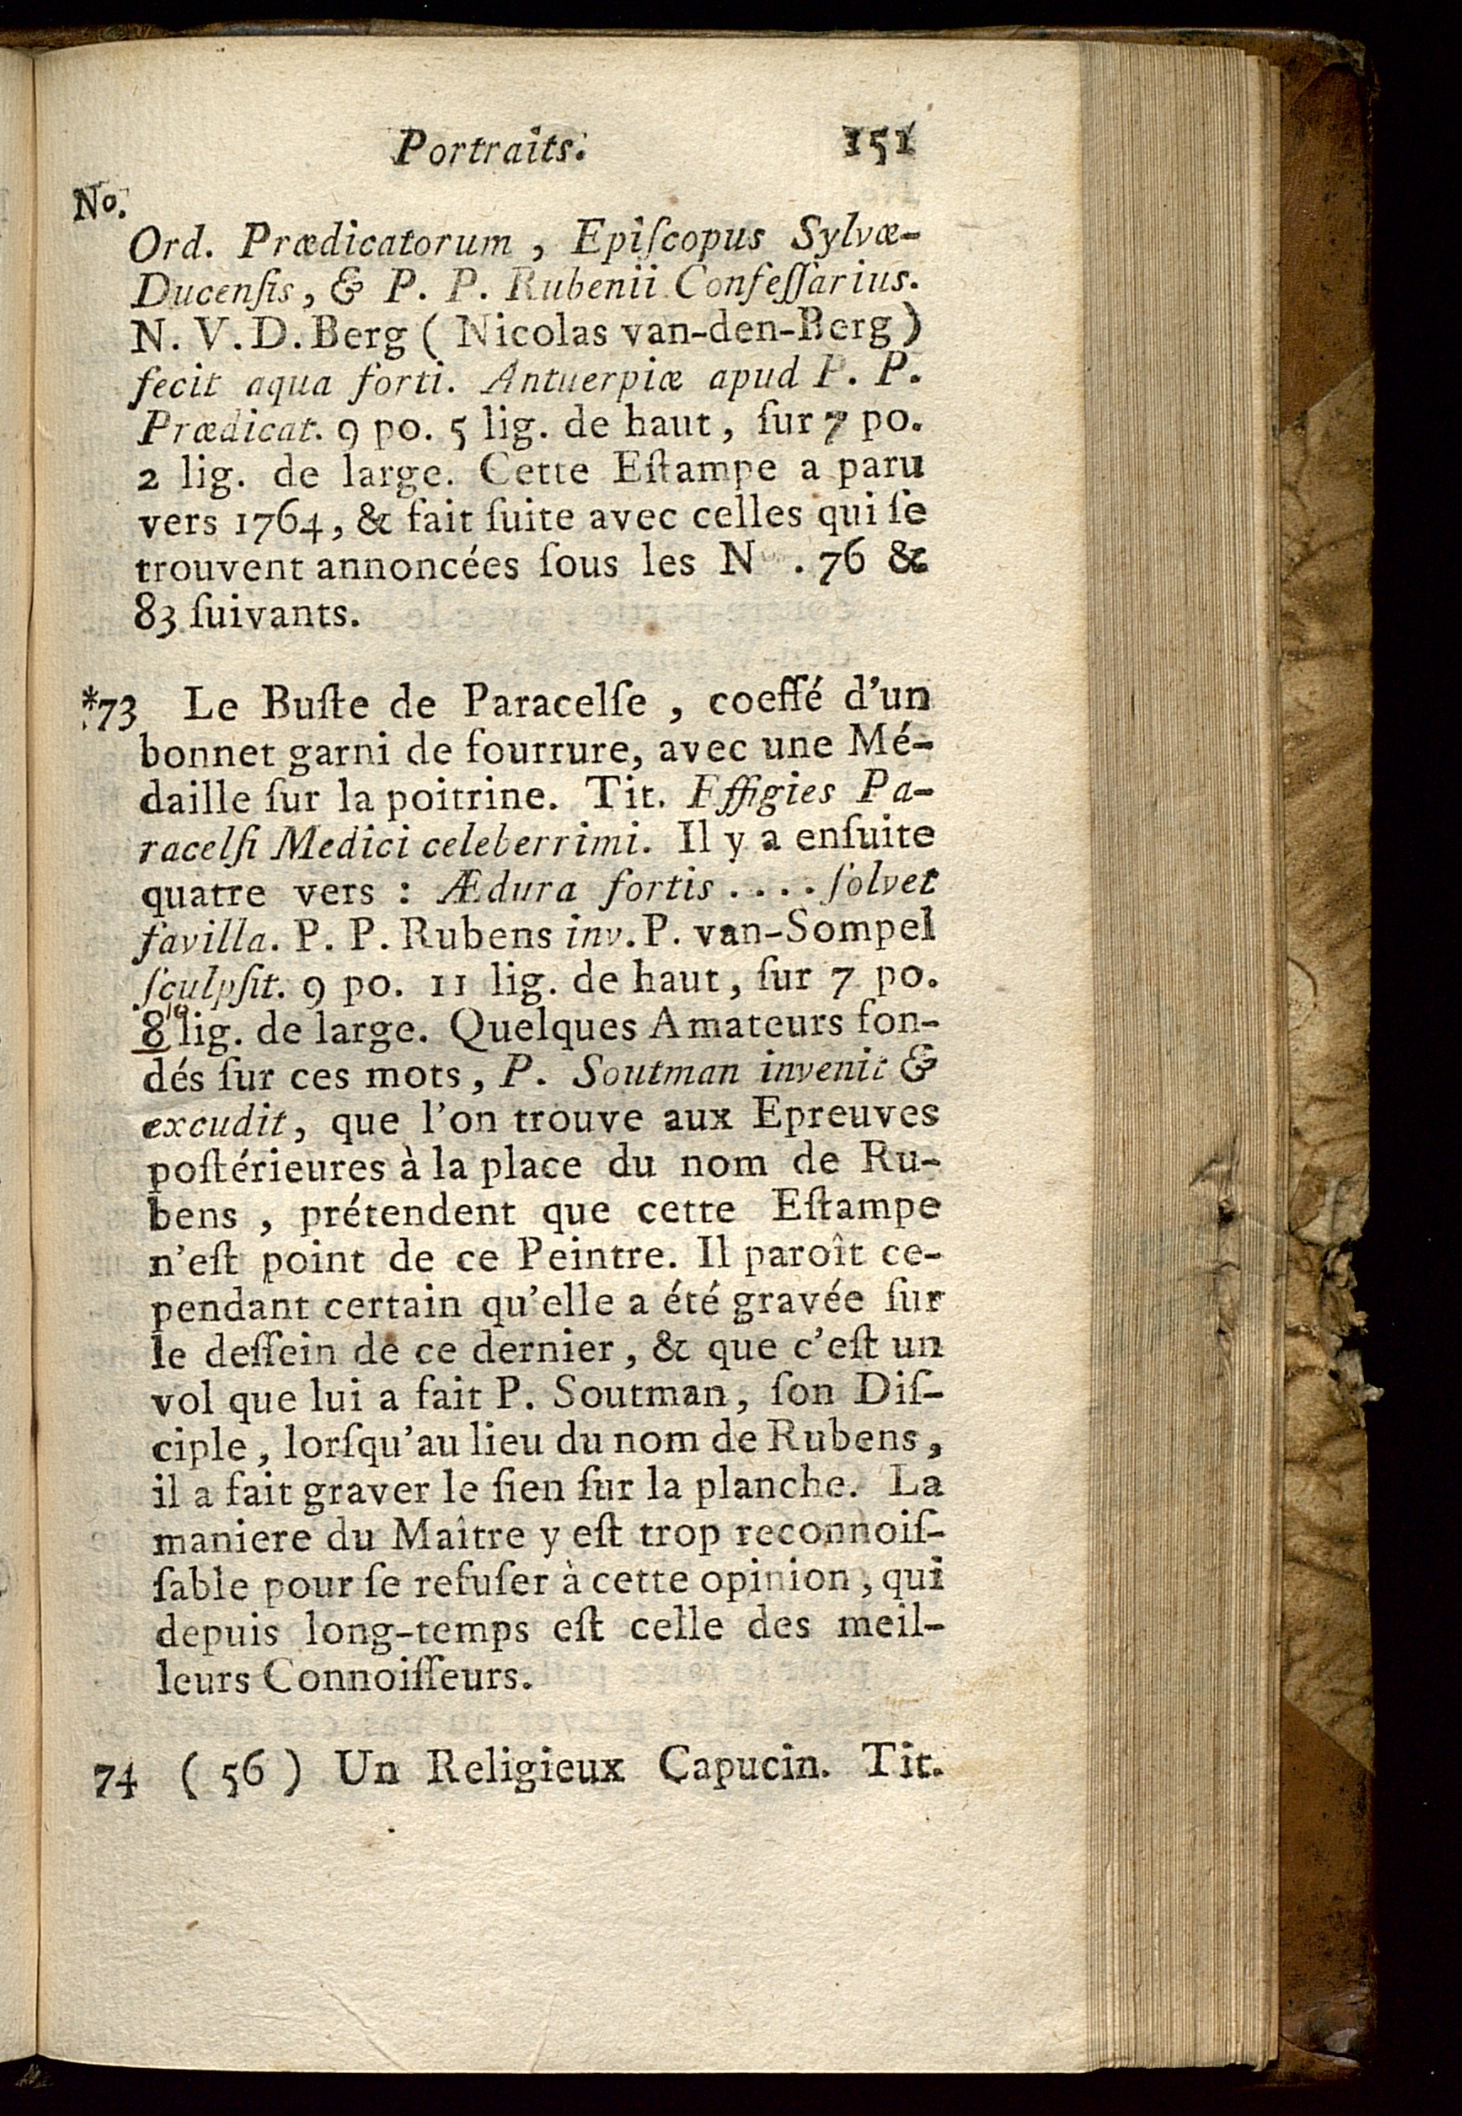 Portraits. 151
No.
Ord. Prædicatorum, Epiſcopus Sylvæ-
Ducenſis, & P. P. Rubenii Confeſſarius.
N. V. D. Berg ( Nicolas van-den-Berg )
fecit aqua forti. Antuerpiæ apud P. P.
Prædicat. 9 po. 5 lig. de haut, ſur 7 po.
2 lig. de large. Cette Eſtampe a paru
vers 1764, & fait ſuite avec celles qui ſe
trouvent annoncées ſous les N . 76 &
83 ſuivants.
*73 Le Buſte de Paracelſe, coeffé d'un
bonnet garni de fourrure, avec une Mé-
daille ſur la poitrine. Tit. Effigies Pa-
racelſi Medici celeberrimi. Il y a enſuite
quatre vers : Ædura fortis .... ſolvet
favilla. P. P. Rubens inv. P. van-Sompel
ſculpſit. 9 po. 11 lig. de haut, ſur 7 po.
8 10 lig. de large. Quelques Amateurs fon-
dés ſur ces mots, P. Soutman invenit &
excudit, que l'on trouve aux Epreuves
poſtérieures à la place du nom de Ru-
bens, prétendent que cette Eſtampe
n'eſt point de ce Peintre. Il paroît ce-
pendant certain qu'elle a été gravée ſur
le deſſein de ce dernier, & que c'eſt un
vol que lui a fait P. Soutman, ſon Diſ-
ciple, lorſqu'au lieu du nom de Rubens,
il a fait graver le ſien ſur la planche. La
maniere du Maître y eſt trop reconnoiſ-
ſable pour ſe refuſer à cette opinion, qui
depuis long-temps eſt celle des meil-
leurs Connoiſſeurs.
74 ( 56 ) Un Religieux Capucin. Tit.